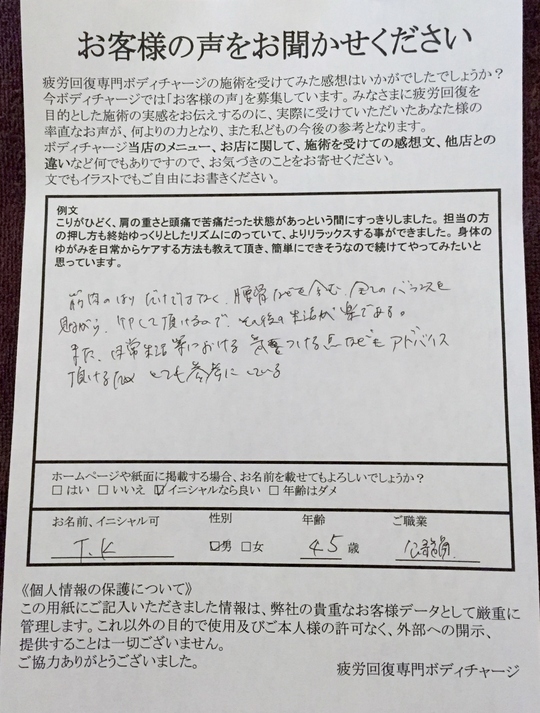 お客様の声をお聞かせください
疲労回復専門ボディチャージの施術を受けてみた感想はいかがでしたでしょうか?
今ボディチャージでは「お客様の声」を募集しています。みなさまに疲労回復を
目的とした施術の実感をお伝えするのに、実際に受けていただいたあなた様の
率直なお声が、何よりの力となり、また私どもの今後の参考となります。
ボディチャージ当店のメニュー、お店に関して、施術を受けての感想文、他店との
違いなど何でもありですので、お気づきのことをお寄せください。
文でもイラストでもご自由にお書きください。
例文
こりがひどく、肩の重さと頭痛で苦痛だった状態があっという間にすっきりしました。担当の方
の押し方も終始ゆっくりとしたリズムにのっていて、よりリラックスする事ができました。身体の
ゆがみを日常からケアする方法も教えて頂き、簡単にできそうなので続けてやってみたいと
思っています。
筋肉のはりだけではなく、腰骨なども含む、全しのバランスを
見ながら、押して頂けるので、その後の生活が楽である。
また、日常生活等における気をつける点などもアドバイス
頂けるため とても参考にしている
ホームページや紙面に掲載する場合、お名前を載せてもよろしいでしょうか?
□はい □いいえ ☑イニシャルなら良い □年齢はダメ
お名前、イニシャル可 性別 年齢 ご職業
T.K ☑男 □女 45歳 公務員
《個人情報の保護について》
この用紙にご記入いただきました情報は、弊社の貴重なお客様データとして厳重に
管理します。これ以外の目的で使用及びご本人様の許可なく、外部への開示、
提供することは一切ございません。
ご協力ありがとうございました。
疲労回復専門ボディチャージ